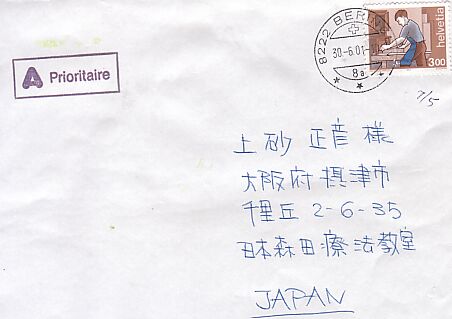 8222 BERINGEN
30-6.01
8a
helvetia
300
A Prioritaire
7/5
上砂 正彦 様
大阪府 摂津市
千里丘 2-6-35
日本森田療法教室
JAPAN